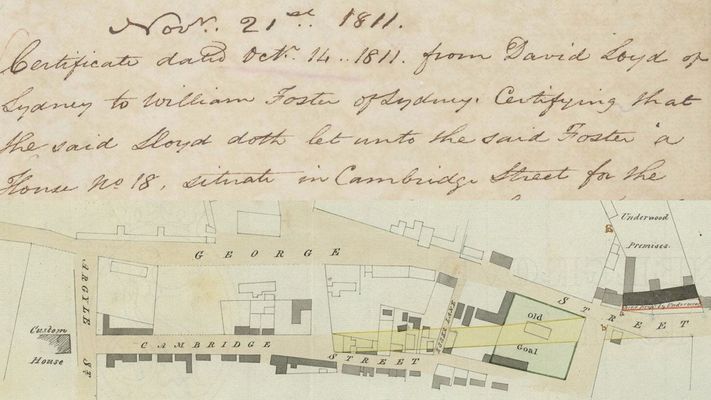 Novr. 21st 1811.
Certificate dated Octr. 14.. 1811. from David Loyd of
Sydney to William Foster of Sydney. Certifying that
the said Lloyd doth let unto the said Foster a
House No 18, situate in Cambridge Street for the
Underwood
Premises
GEORGE
STREET
ARGYLE ST
Custom
House
CAMBRIDGE
STREET
Old
Goal